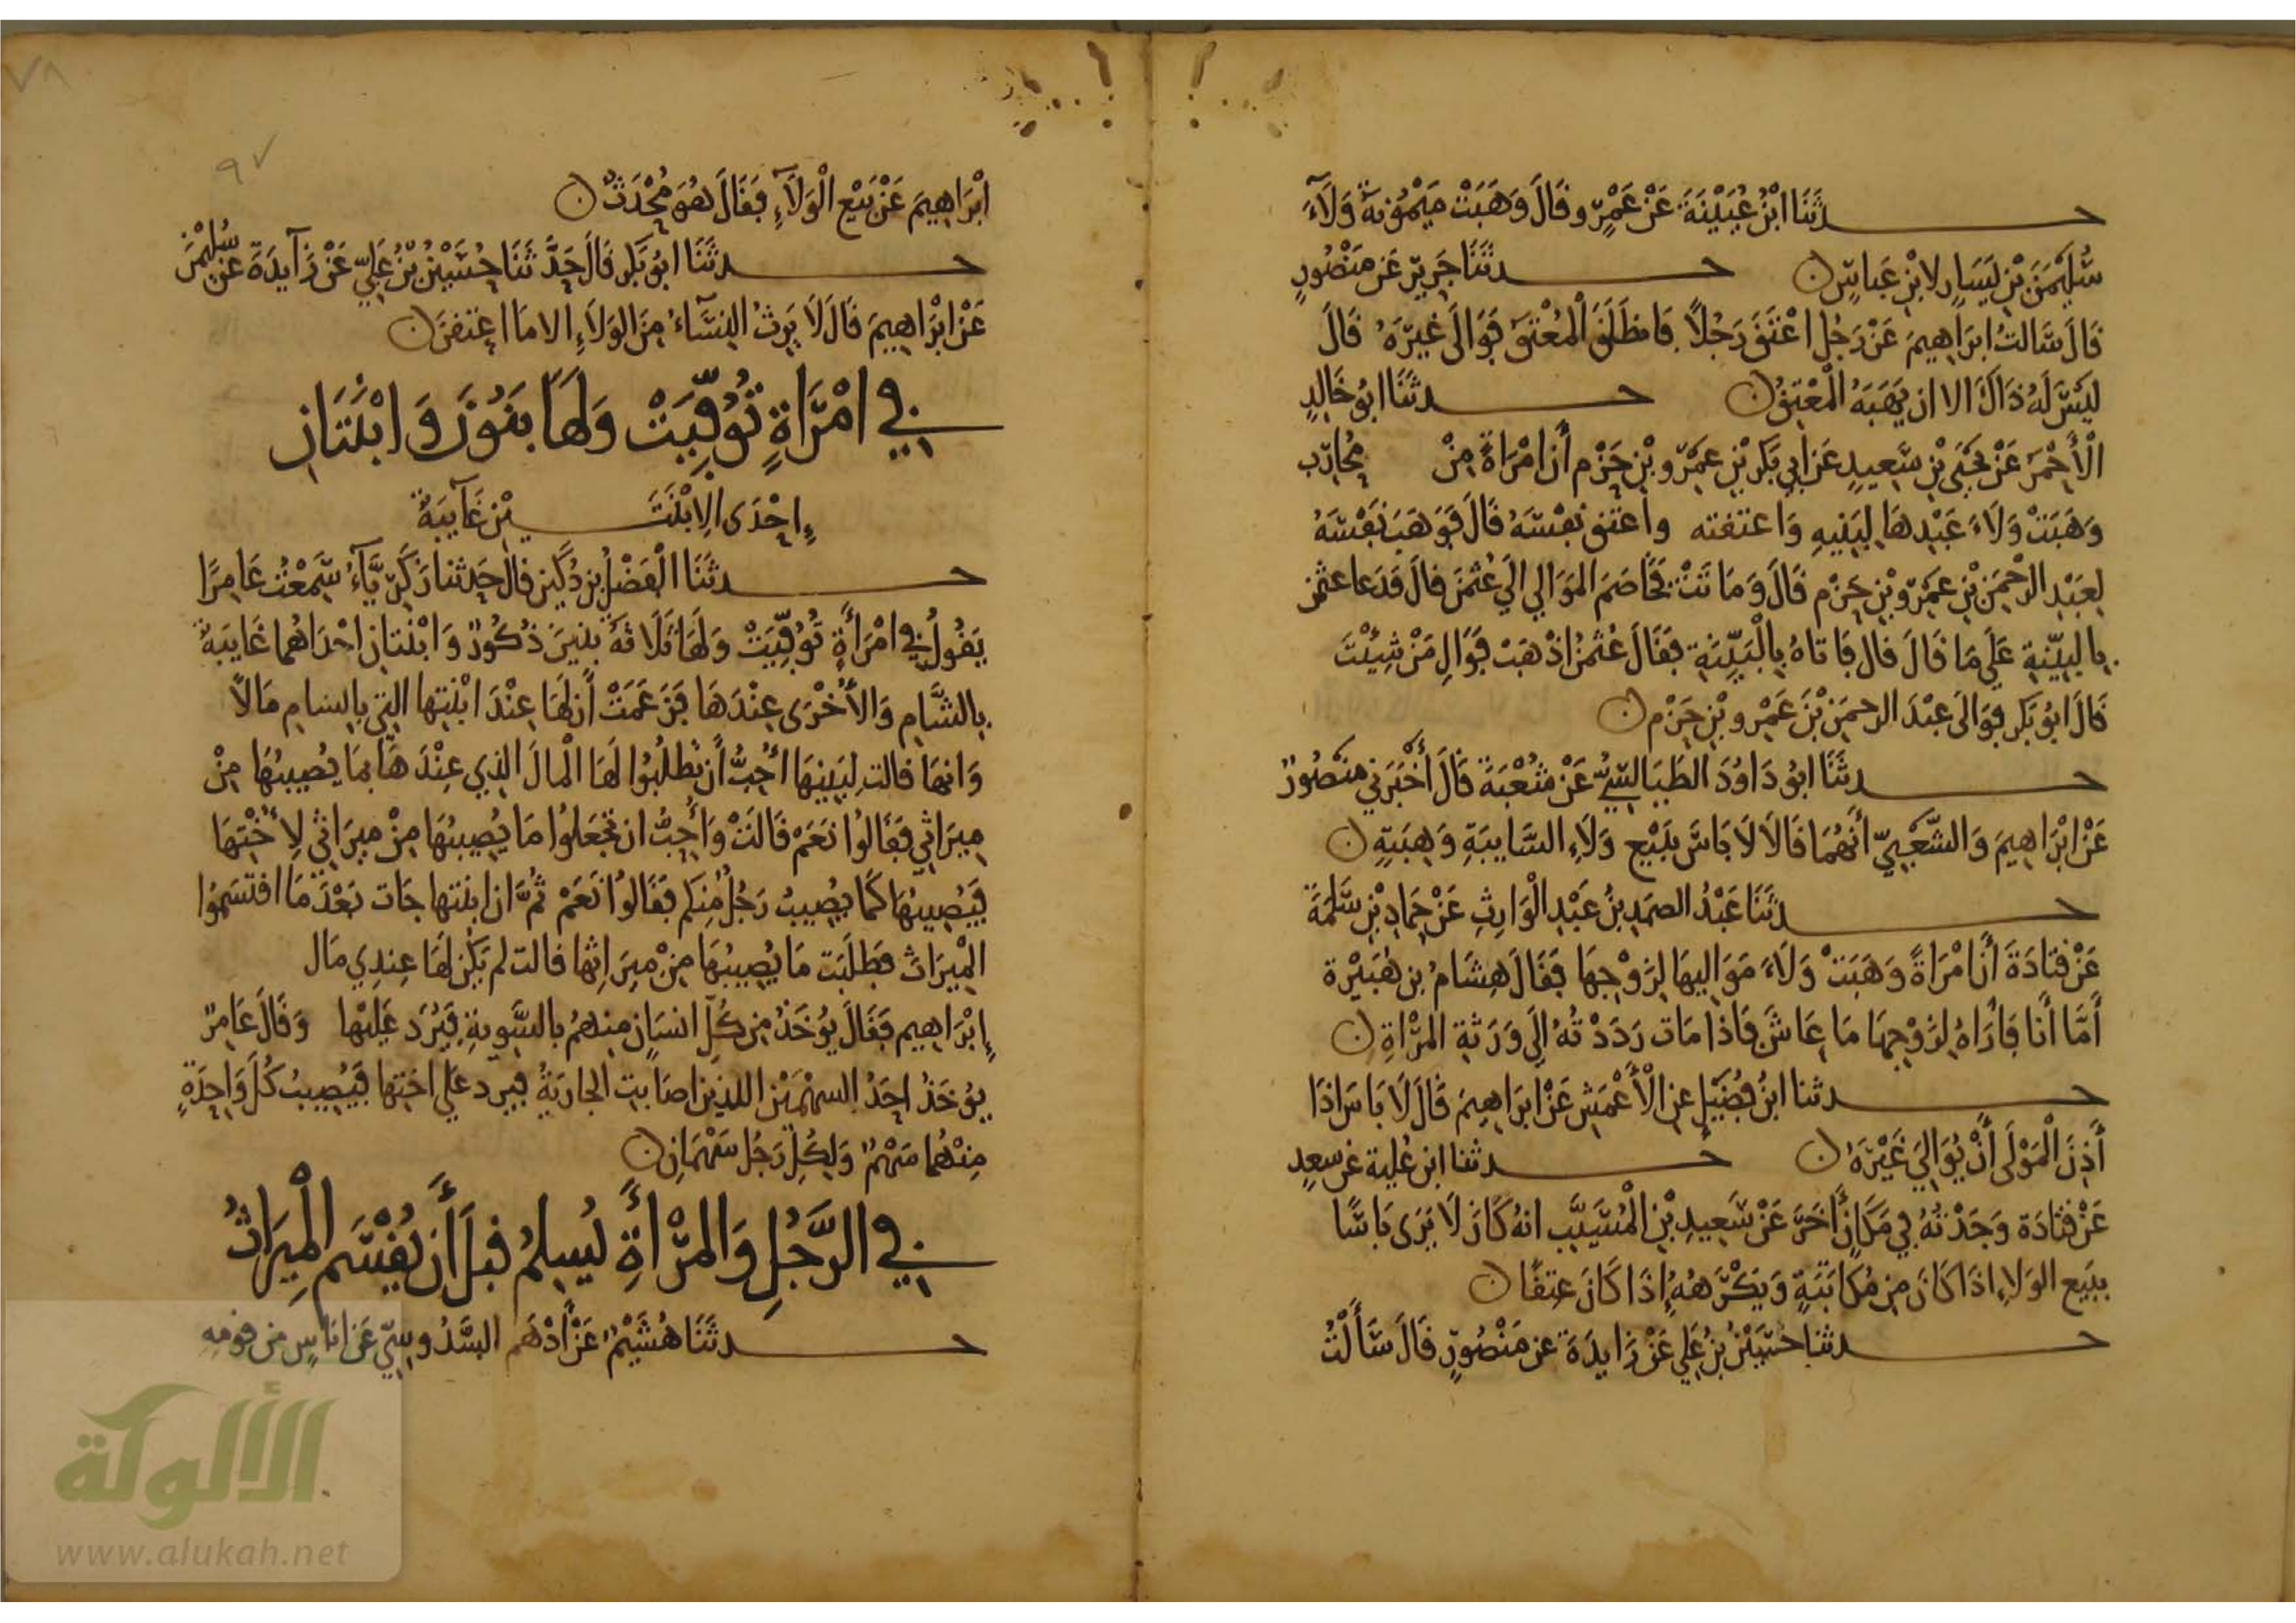 حدثَنَا ابْنُ عُيَيْنَةَ عَنْ عَمْرٍو قَالَ وَهَبَتْ مَيْمُونَةُ وَلَآءَ
سُلَيْمَنَ بْنِ يَسَارٍ لابْنِ عَبَاسٍ ۞ حدثَنَا جَرِيرٌ عَن مَنْصُورٍ
قَالَ سَالتُ ابرَاهِيمَ عَنْ رَجُلٍ اعْتَقَ رَجُلاً فَانطَلَقَ الْمُعْتَقُ فَوَالَى غيرَهُ قَالَ
لَيْسَ لَهُ ذَاكَ الا ان يَهَبَهُ الْمُعْتِقُ ۞ حدثَنَا ابُو خَالِدٍ
الْأَحْمَر عَنْ يَحْيَى بْنِ سَعِيدٍ عَن ابي بَكرِ بْنِ عَمْرو بْنِ حَزْم أَن امْرَاةً مِنْ مُحَارِب
وَهَبَتْ وَلَاءَ عَبْدِهَا لِبَنِيهِ وَاعتقته واعتق نفسَهُ قَالَ فَوَهَبَ نَفْسَهُ
لِعَبْدِ الرَّحْمَنِ بْنِ عَمْرو بْنِ حَزْم قَالَ وَمَاتَتْ فَخَاصَمَ الْمَوَالِي الَي عُثْمَنَ قَالَ فَدَعَا عثمن
بِالبَيِّنَةِ عَلَي مَا قَالَ قال فَاتَاهُ بِالْبَيِّنَةِ فقَالَ عُثْمَنُ اذْهَبْ فَوَالِ مَنْ شِئْتَ
قَالَ ابُو بَكرٍ فَوَالَى عَبْدَ الرحمَنِ بْنَ عَمْرو بْنِ حَزْم ۞
حدثَنَا ابُو دَاوُدَ الطَيَالِسِيُّ عَنْ شُعْبَةَ قَالَ أَخْبَرَنِي مَنصُورٌ
عَنْ ابْرَاهِيمَ وَالشَّعْبِيِّ أَنَّهُمَا قَالَا لَا بَاسَ بِبَيْعِ وَلَاءِ السَّايبَةِ وَهِبَتِهِ ۞
حدثَنَا عَبْدُ الصمَدِ بنُ عَبْدِ الْوَارِثِ عَنْ حَمادِ بْنِ سَلَمَةَ
عَنْ قتَادَةَ أَنَّ امْرَاةً وَهَبَتْ وَلَاءَ مَوَالِيهَا لِزَوْجِهَا فَقَالَ هِشَامُ بن هُبَيْرة
أَمَّا أَنَا فَأَرَاهُ لِزَوْجِهَا مَا عَاشَ فَاذا مَاتَ رَدَدْتُهُ الَي وَرَثَةِ المَرْاةِ ۞
حدثنا ابنُ فُضَيْلٍ عن الْأَعْمَشِ عَنْ ابرَاهِيمَ قَالَ لَا بَاسَ اذَا
أَذِنَ الْمَوْلَى أَنْ يُوَالِيَ غَيْرَهُ ۞ حدثنا ابن عُلية عن سعيدٍ
عَنْ قَتَادَة وَجَدْتُهُ فِي مَكَانٍ أَخَرَ عَنْ سَعِيدِ بْنِ الْمُسَيَّبِ انهُ كَانَ لَا يَرَى بَاسًا
بِبَيع الوَلاءِ اذَا كَانَ مِن مُكَاتَبَةٍ وَيَكْرَهُهُ إِذَا كَانَ عِتقًا ۞
حدثنا حُسَيْنُ بنُ عَلي عَنْ زَايدَةَ عن مَنْصُورٍ قَالَ سَأَلْتُ
ابْرَاهِيمَ عَنْ بَيْعِ الْوَلَآءِ فَقَالَ هُوَ مُحْدَثٌ ۞
حدثَنَا ابُو بَكرٍ قَالَ حَدَّثَنَا حُسَيْنُ بْنُ عَلِيّ عَنْ زَآيدَةَ عَنْ سُلَيْمَنَ
عَنْ ابْرَاهِيمَ قَالَ لَا يَرِثُ النِّسَآءُ مِنَ الوَلَاءِ الا مَا اعتَقنَ ۞
فِي امْرَاةٍ تُوُفِّيَتْ وَلَهَا بَنُونَ وَابْنَتَانِ
إِحْدَى الِابْنَتَيْنِ غَآيبَةٌ
حدثَنَا الْفَضْلُ بن دُكَيْنٍ قال حَدثنا زَكَرِيَّآءُ سَمِعْتُ عَامِرًا
يَقُولُ فِي امْرَأَةٍ تُوُفِّيَتْ وَلَهَا ثَلَاثَةُ بَنِينَ ذُكُورٌ وَابْنَتَانِ احْدَاهُما غَايبَةٌ
بِالشَّامِ وَالأُخْرَى عِنْدَهَا فَزَعَمَتْ أَن لَهَا عِنْدَ ابْنَتِها التِي بِالشامِ مَالاً
وَانهَا قالت لِبَنِيهَا أُحِبُّ أَن تَطْلُبُوا لَهَا الْمالَ الذِي عِنْدَهَا بمَا يُصِيبُهَا مِنْ
مِيرَاثِي فَقَالُوا نَعَمْ قَالَتْ وَأُحِبُّ ان تَجْعَلوُا مَا يُصِيبُهَا مِنْ مِيرَاثِي لِأُخْتِهَا
فَيُصِيبُهَا كَمَا يُصِيبُ رَجُلٌ مِنكم فَقَالُوا نَعَمْ ثُمَّ ان ابنتها جَات بَعْدَ مَا اقتَسَمُوا
الْمِيرَاثَ فطَلَبَت مَا يُصِيبُهَا مِنْ مِيرَاثِها قالت لم يَكُن لَهَا عِندِي مَال
إِبْرَاهِيم فَقَالَ يُؤخَذُ مِن كُلِّ انسَان مِنهمُ بالسَّوِيةِ فَيُرَد عَلَيْهَا وَقَالَ عَامِرٌ
يُؤخَذُ احَدُ السهْمَيْنِ اللذين اصَابتِ الجارِيَةُ فَيرد عَلي اختِها فَيُصِيبُ كُلَّ وَاحِدَةٍ
مِنْهُمَا سَهْمٌ وَلِكُلِّ رَجُل سَهْمَانِ ۞
فِي الرَّجُلِ وَالمَرْأَةِ يُسلِمُ قبلَ أَن يُقْسَمَ الْمِيرَاثُ
حدثَنَا هُشَيْمٌ عَنْ أَدْهَم السَّدُوسِيّ عَن انَاسٍ مِن قومِهِ
الألوكة
www.alukah.net